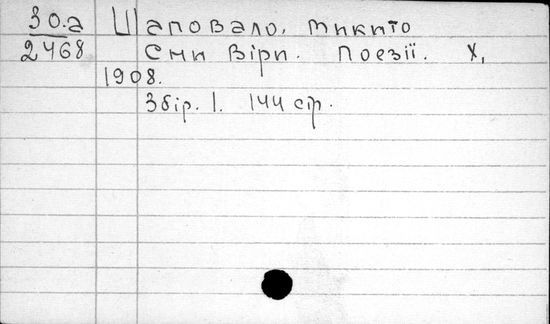 30.а Шаповало, Микито
2468 Сни Віри. Поезії. Х,
1908.
Збір. 1. 144 стр.